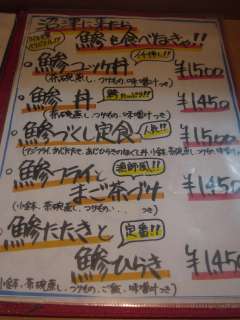 沼津に来たら
鯵を食べなきゃ!!
イチ押し!!
・鯵コロッケ丼 ¥1500
(茶碗蒸し、つけもの、味噌汁つき)
・鯵丼 ¥1450
(茶碗蒸し、つけもの、味噌汁つき)
・鯵づくし定食 人気!! ¥1500
小鉢、茶碗蒸し、つけもの、味噌汁
・鯵フライと 漁師風!!
まご茶づけ ¥1450
(小鉢、茶碗蒸し、つけもの、… つき)
・鯵たたきと 定番!!
鯵ひらき ¥1450
(小鉢、茶碗蒸し、つけもの、ご飯、味噌汁つき)